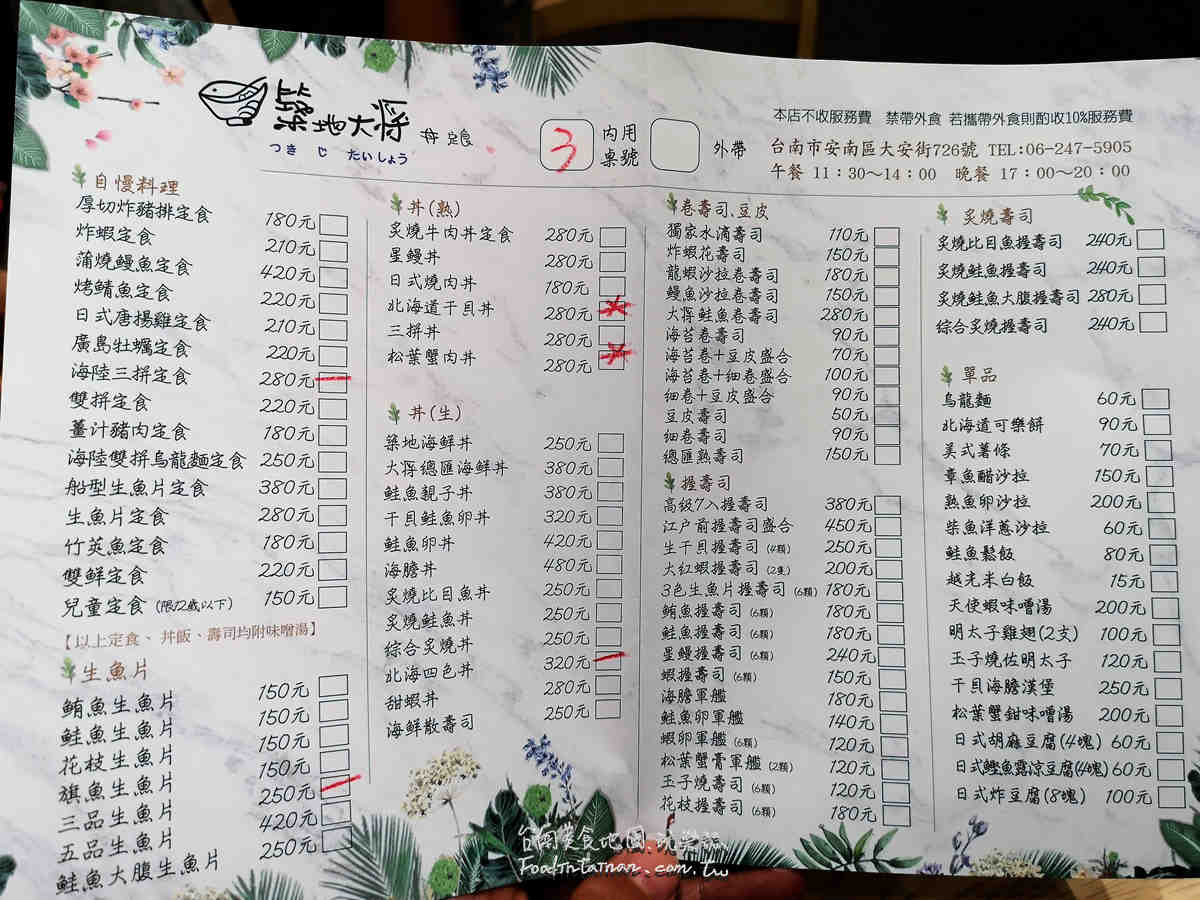 築地大将 丼 定食
つきじ たいしょう
3
內用
桌號
外帶
本店不收服務費 禁帶外食 若攜帶外食則酌收10%服務費
台南市安南區大安街726號 TEL:06-247-5905
午餐 11:30～14:00 晚餐 17:00～20:00
自慢料理
厚切炸豬排定食 180元
炸蝦定食 210元
蒲燒鰻魚定食 420元
烤鯖魚定食 220元
日式唐揚雞定食 210元
廣島牡蠣定食 220元
海陸三拼定食 280元
雙拼定食 220元
薑汁豬肉定食 180元
海陸雙拼烏龍麵定食 250元
船型生魚片定食 380元
生魚片定食 280元
竹莢魚定食 180元
雙鮮定食 220元
兒童定食 (限12歲以下) 150元
【以上定食、丼飯、壽司均附味噌湯】
生魚片
鮪魚生魚片 150元
鮭魚生魚片 150元
花枝生魚片 150元
旗魚生魚片 150元
三品生魚片 250元
五品生魚片 420元
鮭魚大腹生魚片 250元
丼(熟)
炙燒牛肉丼定食 280元
星鰻丼 280元
日式燒肉丼 180元
北海道干貝丼 280元
三拼丼 280元
松葉蟹肉丼 280元
丼(生)
築地海鮮丼 250元
大將總匯海鮮丼 380元
鮭魚親子丼 380元
干貝鮭魚卵丼 320元
鮭魚卵丼 420元
海膽丼 480元
炙燒比目魚丼 250元
炙燒鮭魚丼 250元
綜合炙燒丼 250元
北海四色丼 320元
甜蝦丼 280元
海鮮散壽司 250元
卷壽司、豆皮
獨家水滴壽司 110元
炸蝦花壽司 150元
龍蝦沙拉卷壽司 180元
鰻魚沙拉卷壽司 150元
大將鮭魚卷壽司 280元
海苔卷壽司 90元
海苔卷+豆皮盛合 70元
海苔卷+細卷盛合 100元
細卷+豆皮盛合 90元
豆皮壽司 50元
細卷壽司 90元
總匯熟壽司 150元
握壽司
高級7入握壽司 380元
江戶前握壽司盛合 450元
生干貝握壽司 (4顆) 250元
大紅蝦握壽司 (2隻) 200元
3色生魚片握壽司 (6顆) 180元
鮪魚握壽司 (6顆) 180元
鮭魚握壽司 (6顆) 180元
星鰻握壽司 (6顆) 240元
蝦握壽司 (6顆) 150元
海膽軍艦 180元
鮭魚卵軍艦 140元
蝦卵軍艦 (6顆) 120元
松葉蟹膏軍艦 (2顆) 120元
玉子燒壽司 (6顆) 120元
花枝握壽司 (6顆) 180元
炙燒壽司
炙燒比目魚握壽司 240元
炙燒鮭魚握壽司 240元
炙燒鮭魚大腹握壽司 280元
綜合炙燒握壽司 240元
單品
烏龍麵 60元
北海道可樂餅 90元
美式薯條 70元
章魚醋沙拉 150元
熟魚卵沙拉 200元
柴魚洋蔥沙拉 60元
鮭魚鬆飯 80元
越光米白飯 15元
天使蝦味噌湯 200元
明太子雞翅(2支) 100元
玉子燒佐明太子 120元
干貝海膽漢堡 250元
松葉蟹鉗味噌湯 200元
日式胡麻豆腐(4塊) 60元
日式鰹魚露涼豆腐(4塊) 60元
日式炸豆腐(8塊) 100元
台南美食地圖.玩樂誌.
Foodintainan.com.tw